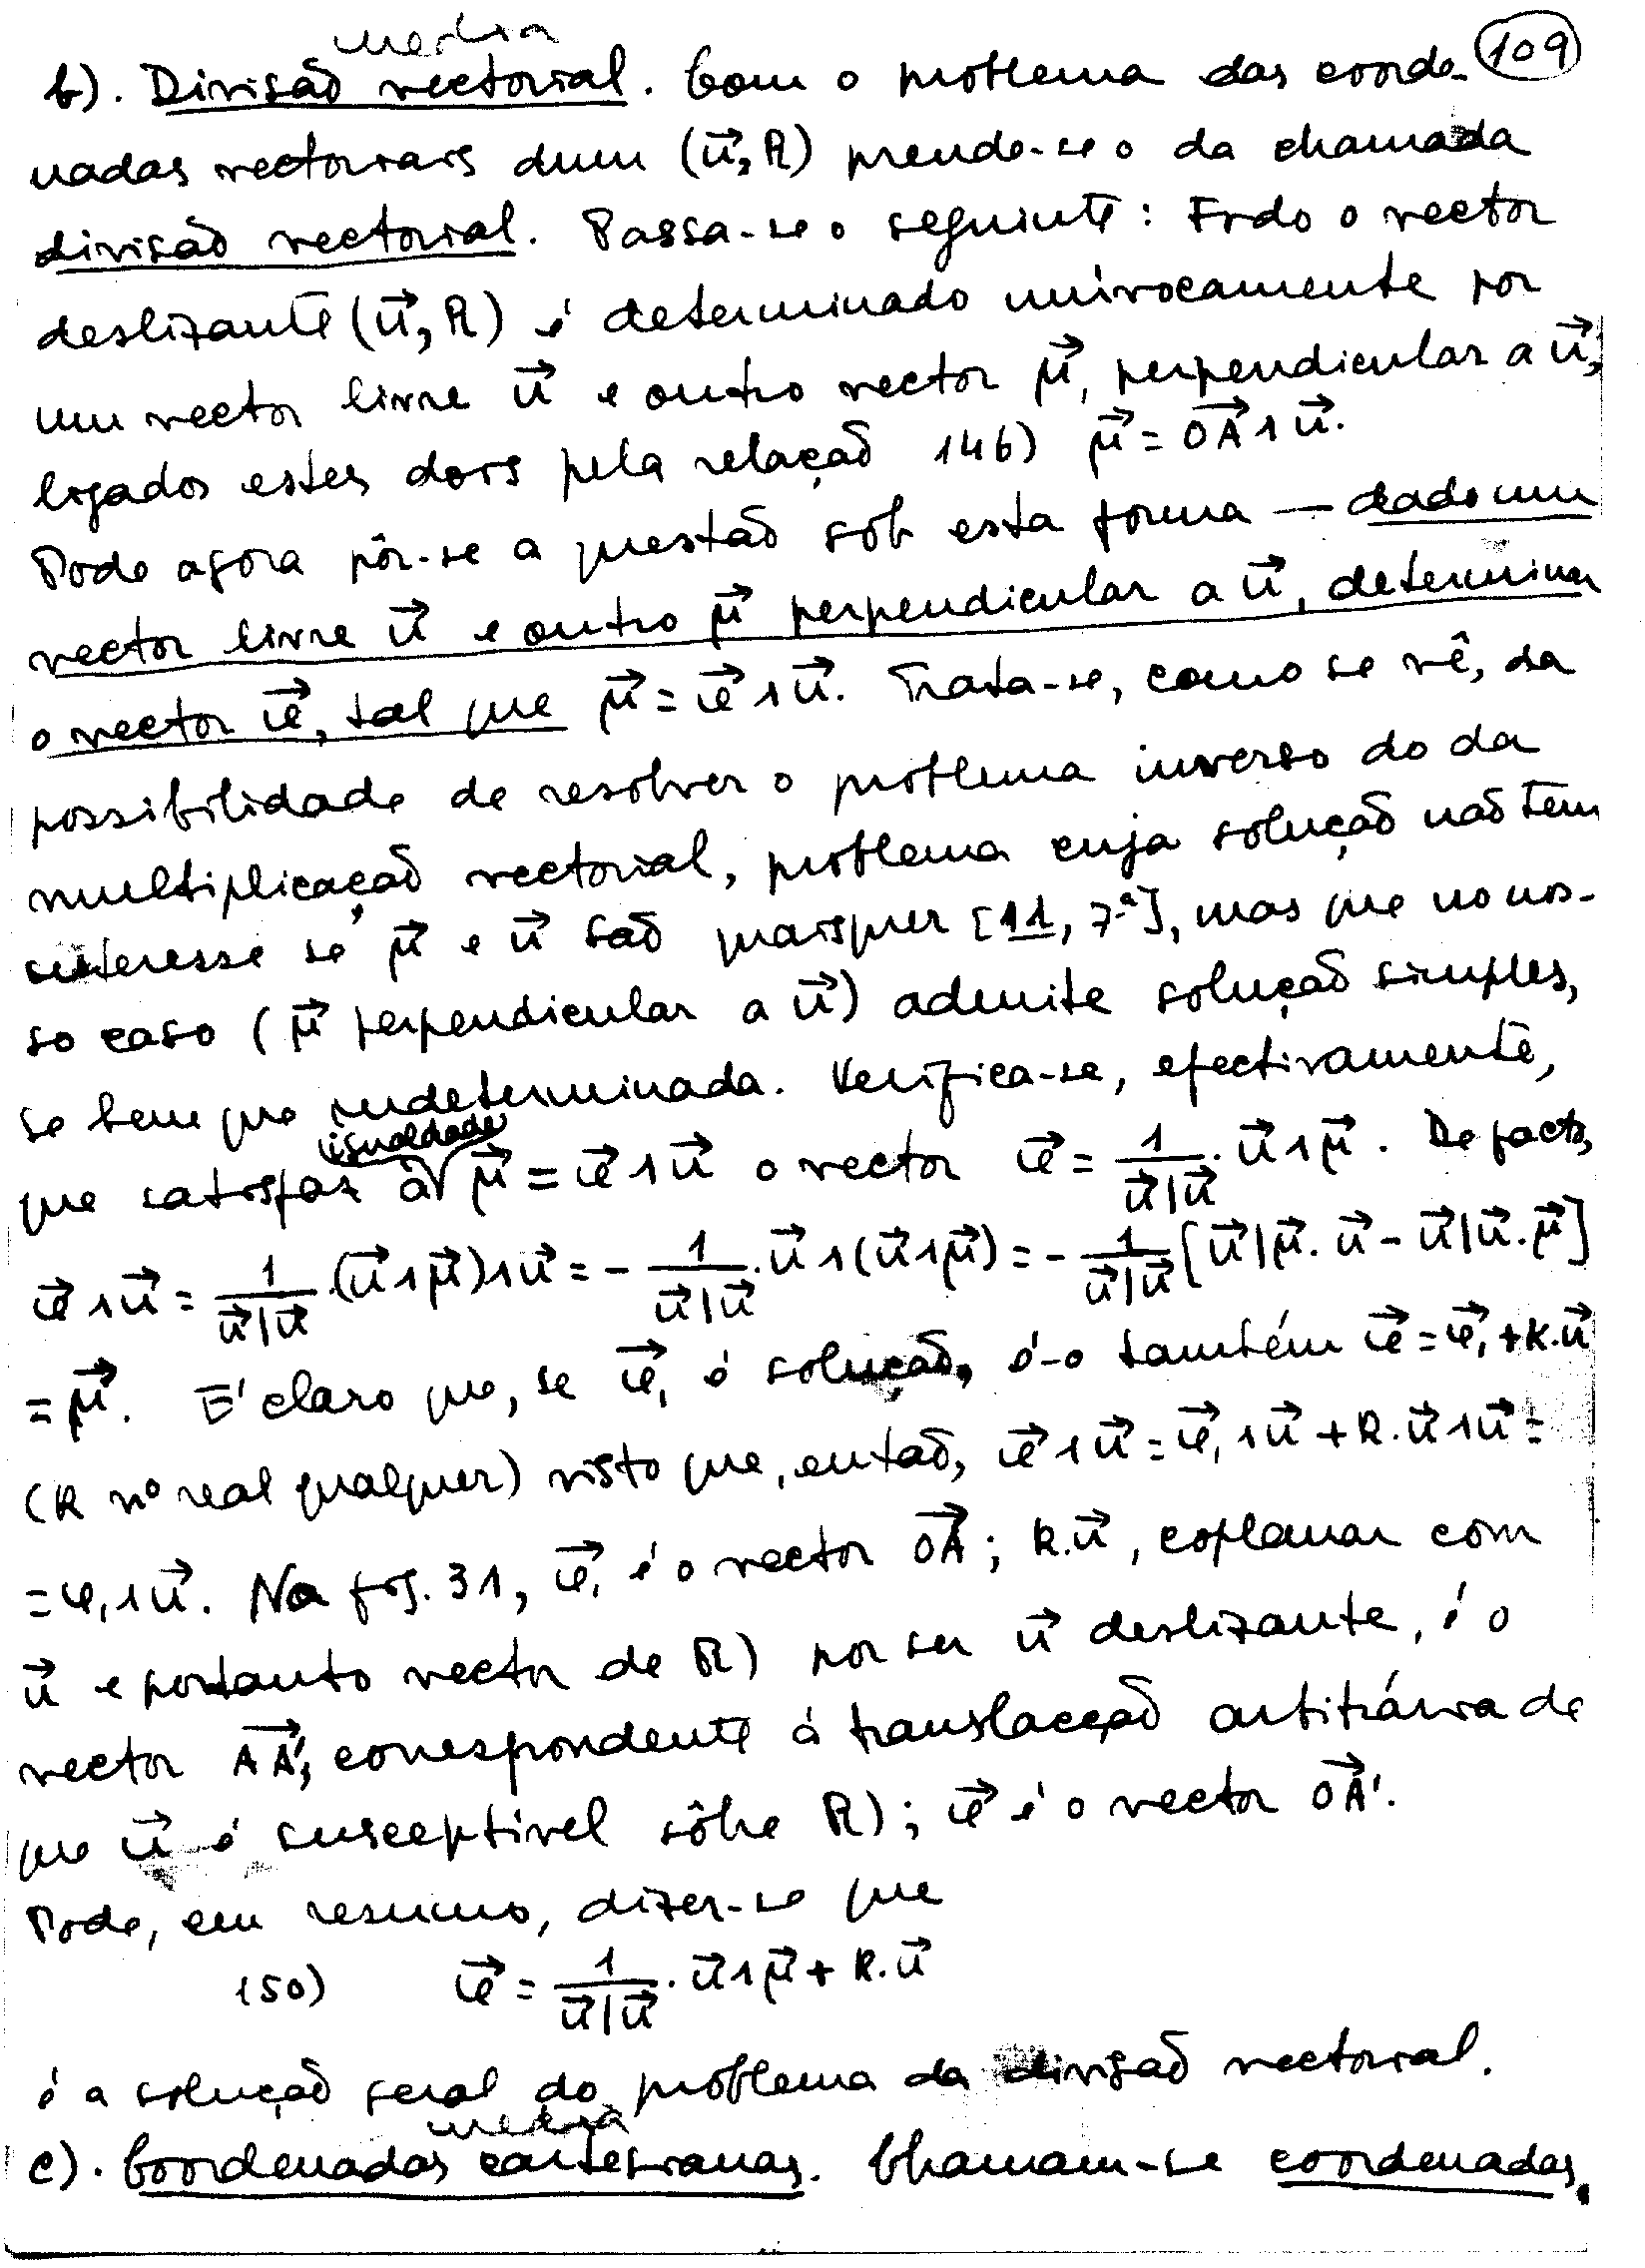 109
media
b). Divisão vectorial. Com o problema das coorde-
nadas vectoriais dum (u⃗, R) prende-se o da chamada
divisão vectorial. Passa-se o seguinte: Todo o vector
deslizante (u⃗, R) é determinado univocamente por
um vector livre u⃗ e outro vector μ⃗, perpendicular a u⃗,
ligados estes dois pela relação 146) μ⃗ = OA⃗ ∧ u⃗.
Pode agora pôr-se a questão sob esta forma — dado um
vector livre u⃗ e outro μ⃗ perpendicular a u⃗, determinar
o vector φ⃗, tal que μ⃗ = φ⃗ ∧ u⃗. Trata-se, como se vê, da
possibilidade de resolver o problema inverso do da
multiplicação vectorial, problema cuja solução não tem
interesse se μ⃗ e u⃗ são quaisquer [11, 7.ª], mas que no nos-
so caso (μ⃗ perpendicular a u⃗) admite solução simples,
se bem que indeterminada. Verifica-se, efectivamente,
que satisfaz à igualdade μ⃗ = φ⃗ ∧ u⃗ o vector φ⃗ = 1/(u⃗|u⃗) . u⃗ ∧ μ⃗. De facto,
φ⃗ ∧ u⃗ = 1/(u⃗|u⃗) . (u⃗ ∧ μ⃗) ∧ u⃗ = - 1/(u⃗|u⃗) . u⃗ ∧ (u⃗ ∧ μ⃗) = - 1/(u⃗|u⃗) [u⃗|μ⃗ . u⃗ - u⃗|u⃗ . μ⃗]
= μ⃗. É claro que, se φ⃗₁ é solução, é-o também φ⃗ = φ⃗₁ + k.u⃗
(k nº real qualquer) visto que, então, φ⃗ ∧ u⃗ = φ⃗₁ ∧ u⃗ + k.u⃗ ∧ u⃗ =
= φ₁ ∧ u⃗. Na fig. 31, φ⃗₁ é o vector OA⃗; k.u⃗, coplanar com
u⃗ e portanto vector de R) por ser u⃗ deslizante, é o
vector AA'⃗, correspondente á translacção arbitrária de
que u⃗ é susceptivel sôbre R); φ⃗ é o vector OA'⃗.
Pode, em resumo, dizer-se que
150) φ⃗ = 1/(u⃗|u⃗) . u⃗ ∧ μ⃗ + k.u⃗
é a solução geral do problema da divisão vectorial.
media
c). Coordenadas cartesianas. Chamam-se coordenadas